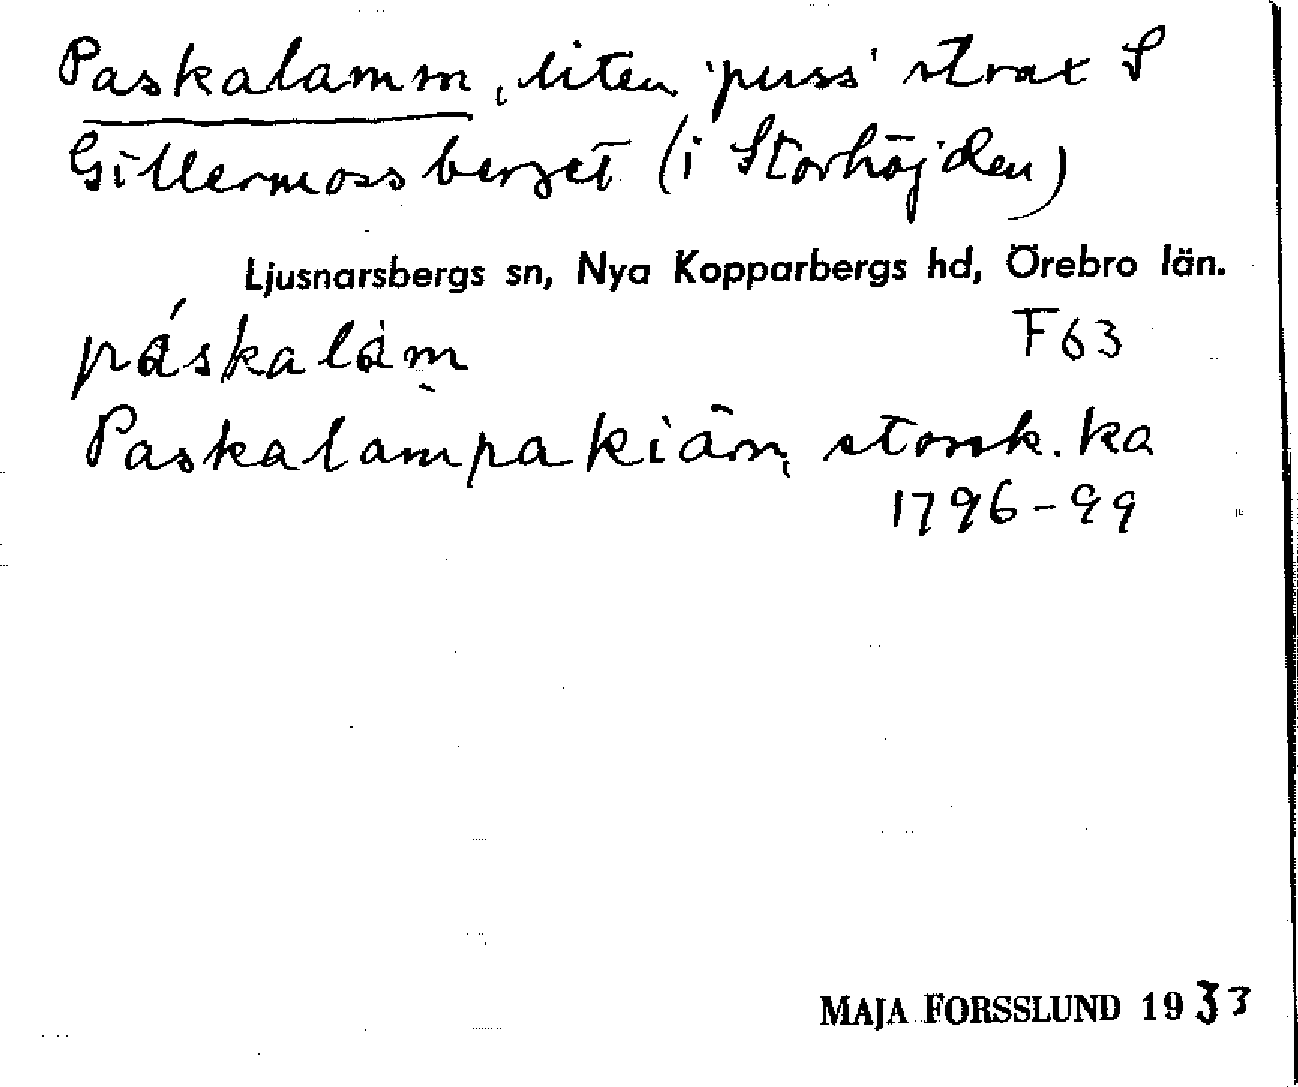 Paskalamm, liten 'puss' strax S
Gillermossberget (i Storhöjden)
Ljusnarsbergs sn, Nya Kopparbergs hd, Örebro län.
páskalàm̀ F63
Paskalampakiän, storsk. ka
1796-99
MAJA FORSSLUND 1933